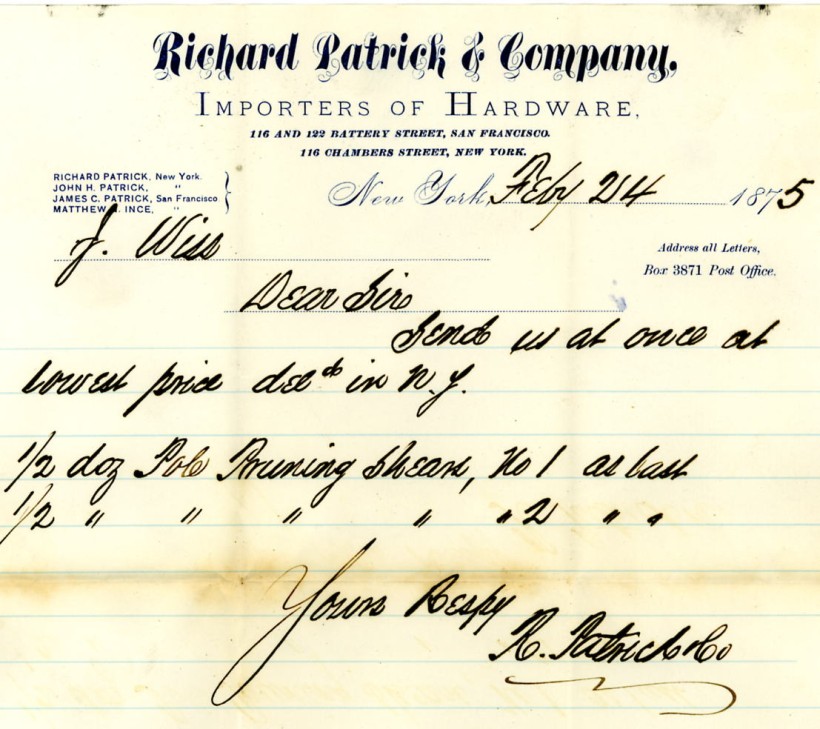 Richard Patrick & Company.
IMPORTERS OF HARDWARE,
116 AND 122 BATTERY STREET, SAN FRANCISCO.
116 CHAMBERS STREET, NEW YORK.
RICHARD PATRICK, New York.
JOHN H. PATRICK, "
JAMES C. PATRICK, San Francisco
MATTHEW INCE, "
New York, Feby 24 1875
J. Wiss
Address all Letters,
Box 3871 Post Office.
Dear Sir
Send us at once at
lowest price deld in N.Y.
1/2 doz Pole Pruning Shears, No 1 as last
1/2 " " " " " 2 " "
Yours Respy
R. Patrick & Co